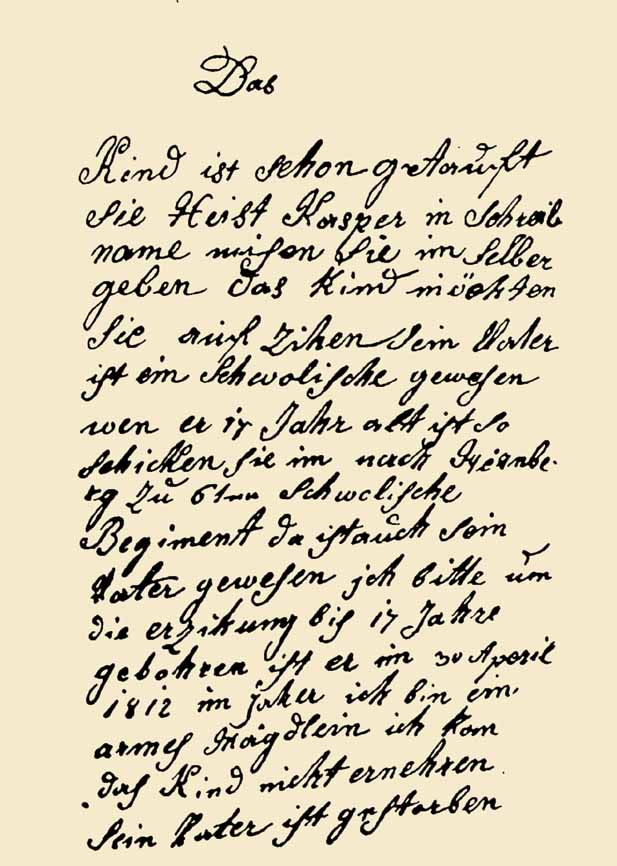 Das
Kind ist schon getauft
Sie Heist Kasper in Schreib
name misen Sie im selber
geben das Kind möchten
Sie auf zihen Sein Vater
ist ein Schwolische gewesen
wen er 17 Jahr alt ist so
schicken sie im nach Nirnbe-
rg zu 6ten Schwolische
Begiment da ist auch sein
Vater gewesen ich bitte um
die erzikung bis 17 Jahre
gebohren ist er im 30 Aperil
1812 im jaher ich bin ein
armes Mägdlein ich kan
das Kind nicht ernehren
Sein Vater ist gestorben